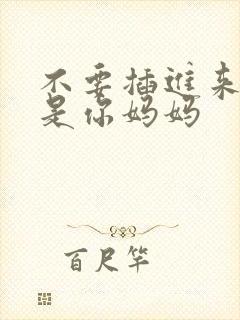 不要插进来
是你妈妈
百尺竿